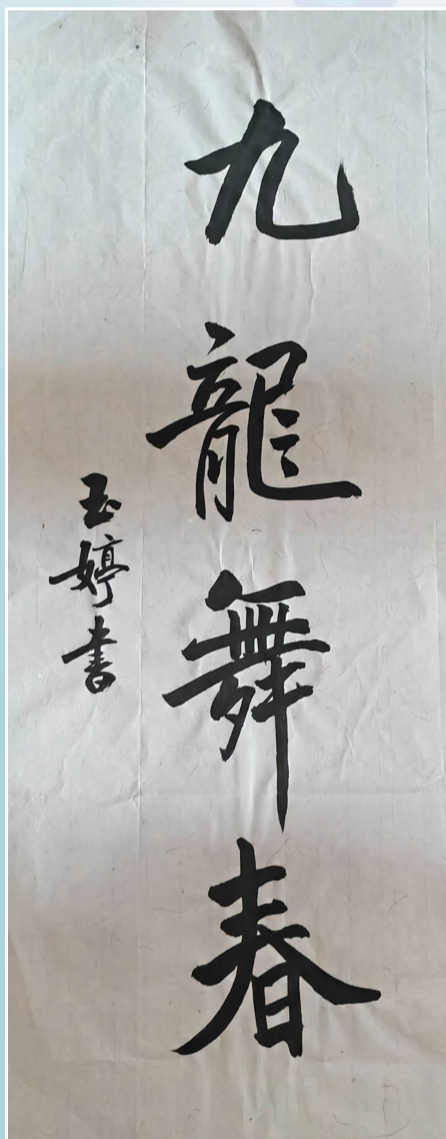 九龍舞春
玉婷書